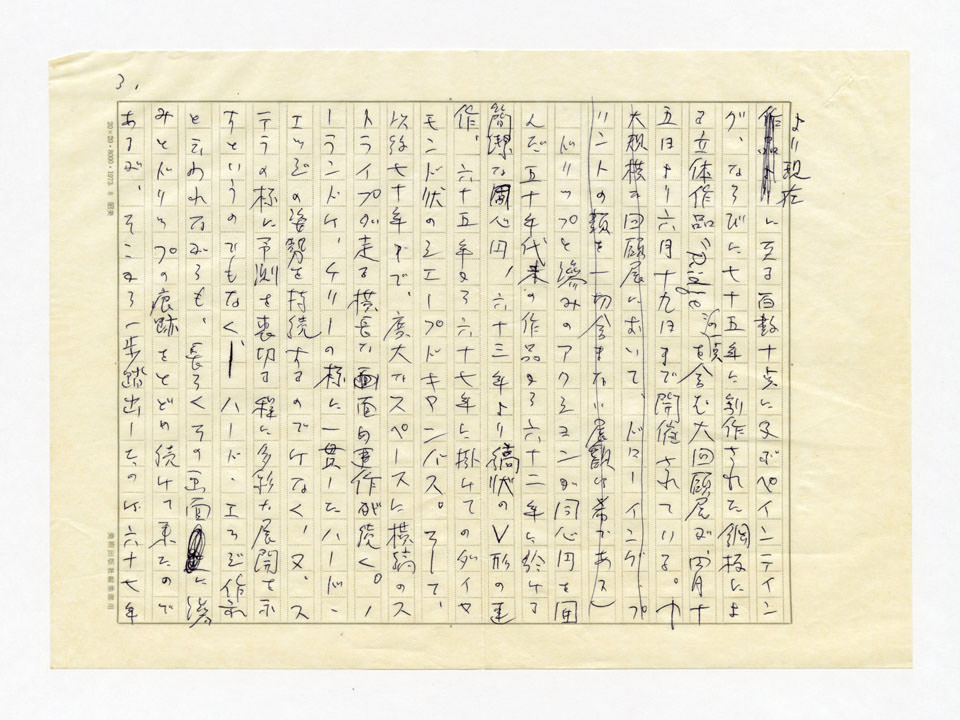 3.
より現在
に至る百数十点に及ぶペインティン
グ、ならびに七十五年に制作された鋼板によ
る立体作品"Ridge 河頭を含む大回顧展が、四月十
五日より六月十九日まで開催されている。(
大規模な回顧展において、ドローイング、プ
リントの類を一切含まない展観は希である)
ドリップと滲みのアクションが同心円を囲
んだ五十年代末の作品から六十二年に於ける
簡潔な同心円、六十三年より縞状のV形の連
作、六十五年から六十七年に掛けてのダイヤ
モンド状のシエープドキャンバス。そして、
以後七十年まで、広大なスペースに横縞のス
トライプが走る横長な画面の連作が続く。ノ
ーランドは、ケリーの様に一貫したハード・
エッジの姿勢を持続するのでなく、又、ス
テラの様に予測を裏切る程に多彩な展開を示
すというのでもなく、ハード・エッジ作家
と云われながらも、長らくその画面に滲
みとドリップの痕跡をとどめ続けて来たので
あるが、そこから一歩踏出したのは六十七年
20×20・8000・1973. 8 国東
美術出版社編集部用